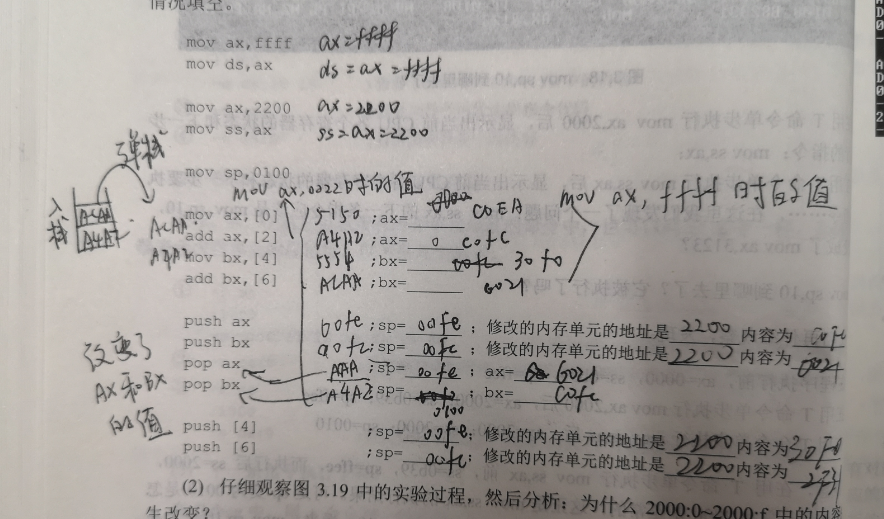 情况填空。
mov ax,ffff ax=ffff
mov ds,ax ds=ax=ffff
mov ax,2200 ax=2200
mov ss,ax ss=ax=2200
弹栈
mov sp,0100
mov ax,0022时的值
mov ax, ffff 时的值
入栈
ACAA
A4A2
ACAA
A4A2
mov ax,[0] 5150 ;ax= C0EA
add ax,[2] A4A2 ;ax= C0FC
mov bx,[4] 555A ;bx= 30f0
add bx,[6] ACAA ;bx= 6021
push ax 00fe ;sp= 00fe ;修改的内存单元的地址是 2200 内容为 C0FC
push bx 00fc ;sp= 00fc ;修改的内存单元的地址是 2200 内容为 6021
pop ax ;sp= 00fe ;ax= 6021
pop bx A4A2 ;sp= 0100 ;bx= C0fc
改变了
AX和BX
的值
push [4] ;sp= 00fe ;修改的内存单元的地址是 2200 内容为 30F0
push [6] ;sp= 00fc ;修改的内存单元的地址是 2200 内容为
(2) 仔细观察图 3.19 中的实验过程，然后分析：为什么 2000:0~2000:f 中的内容
生改变？